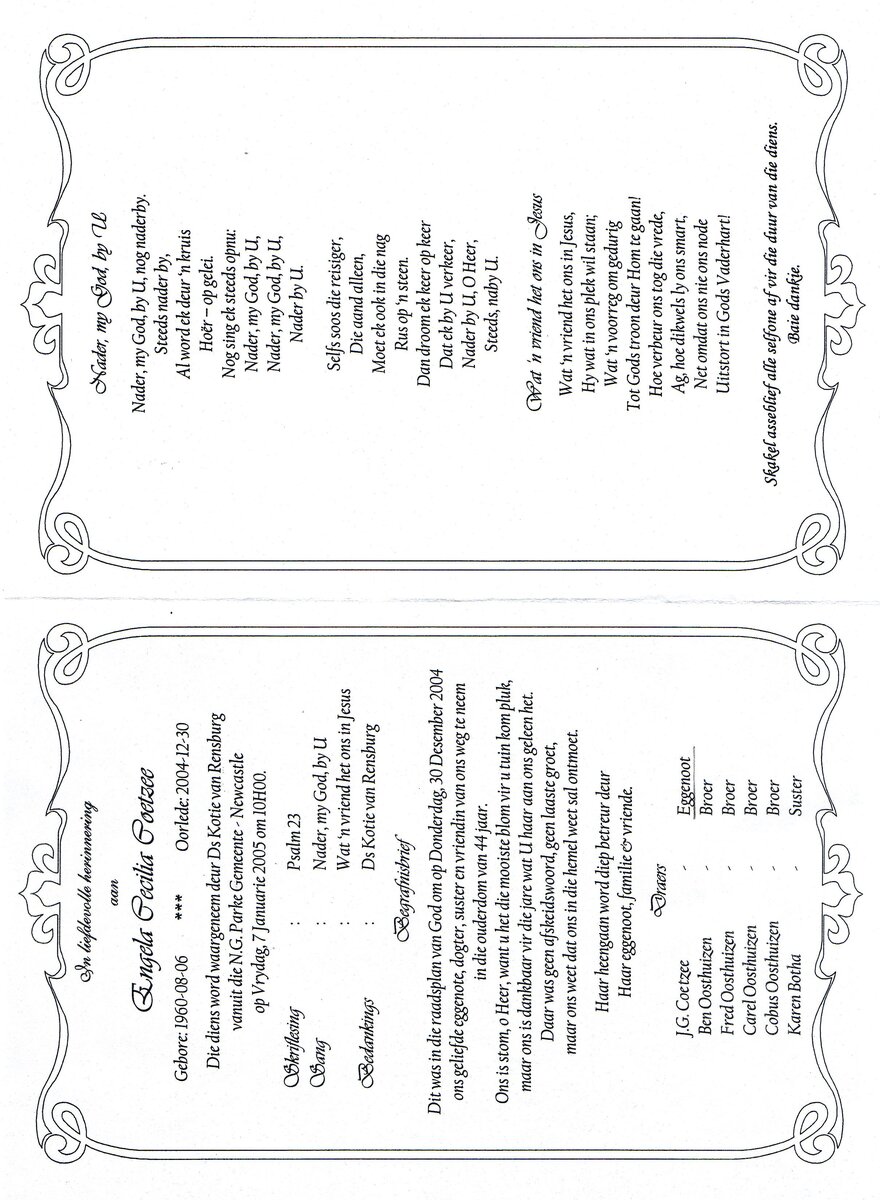 In liefdevolle herinnering
aan
Engela Cecilia Coetzee
Gebore: 1960-08-06 *** Oorlede: 2004-12-30
Die diens word waargeneem deur Ds Kotie van Rensburg
vanuit die N.G. Parke Gemeente - Newcastle
op Vrydag, 7 Januarie 2005 om 10H00.
Skriflesing : Psalm 23
Sang : Nader, my God, by U
: Wat 'n vriend het ons in Jesus
Bedankings : Ds Kotie van Rensburg
Begrafnisbrief
Dit was in die raadsplan van God om op Donderdag, 30 Desember 2004
ons geliefde eggenote, dogter, suster en vriendin van ons weg te neem
in die ouderdom van 44 jaar.
Ons is stom, o Heer, want u het die mooiste blom vir u tuin kom pluk,
maar ons is dankbaar vir die jare wat U haar aan ons geleen het.
Daar was geen afskeidswoord, geen laaste groet,
maar ons weet dat ons in die hemel weet sal ontmoet.
Haar heengaan word diep betreur deur
Haar eggenoot, familie & vriende.
Draers
J.G. Coetzee - Eggenoot
Ben Oosthuizen - Broer
Fred Oosthuizen - Broer
Carel Oosthuizen - Broer
Cobus Oosthuizen - Broer
Karen Botha - Suster
Nader, my God, by U
Nader, my God, by U, nog naderby.
Steeds nader by,
Al word ek deur 'n kruis
Hoër – op gelei.
Nog sing ek steeds opnu:
Nader, my God, by U,
Nader, my God, by U,
Nader by U.
Selfs soos die reisiger,
Die aand alleen,
Moet ek ook in die nag
Rus op 'n steen.
Dan droom ek keer op keer
Dat ek by U verkeer,
Nader by U, O Heer,
Steeds, naby U.
Wat 'n vriend het ons in Jesus
Wat 'n vriend het ons in Jesus,
Hy wat in ons plek wil staan;
Wat 'n voorreg om gedurig
Tot Gods troon deur Hom te gaan!
Hoe verbeur ons tog die vrede,
Ag, hoe dikwels ly ons smart,
Net omdat ons nie ons node
Uitstort in Gods Vaderhart!
Skakel asseblief alle selfone af vir die duur van die diens.
Baie dankie.